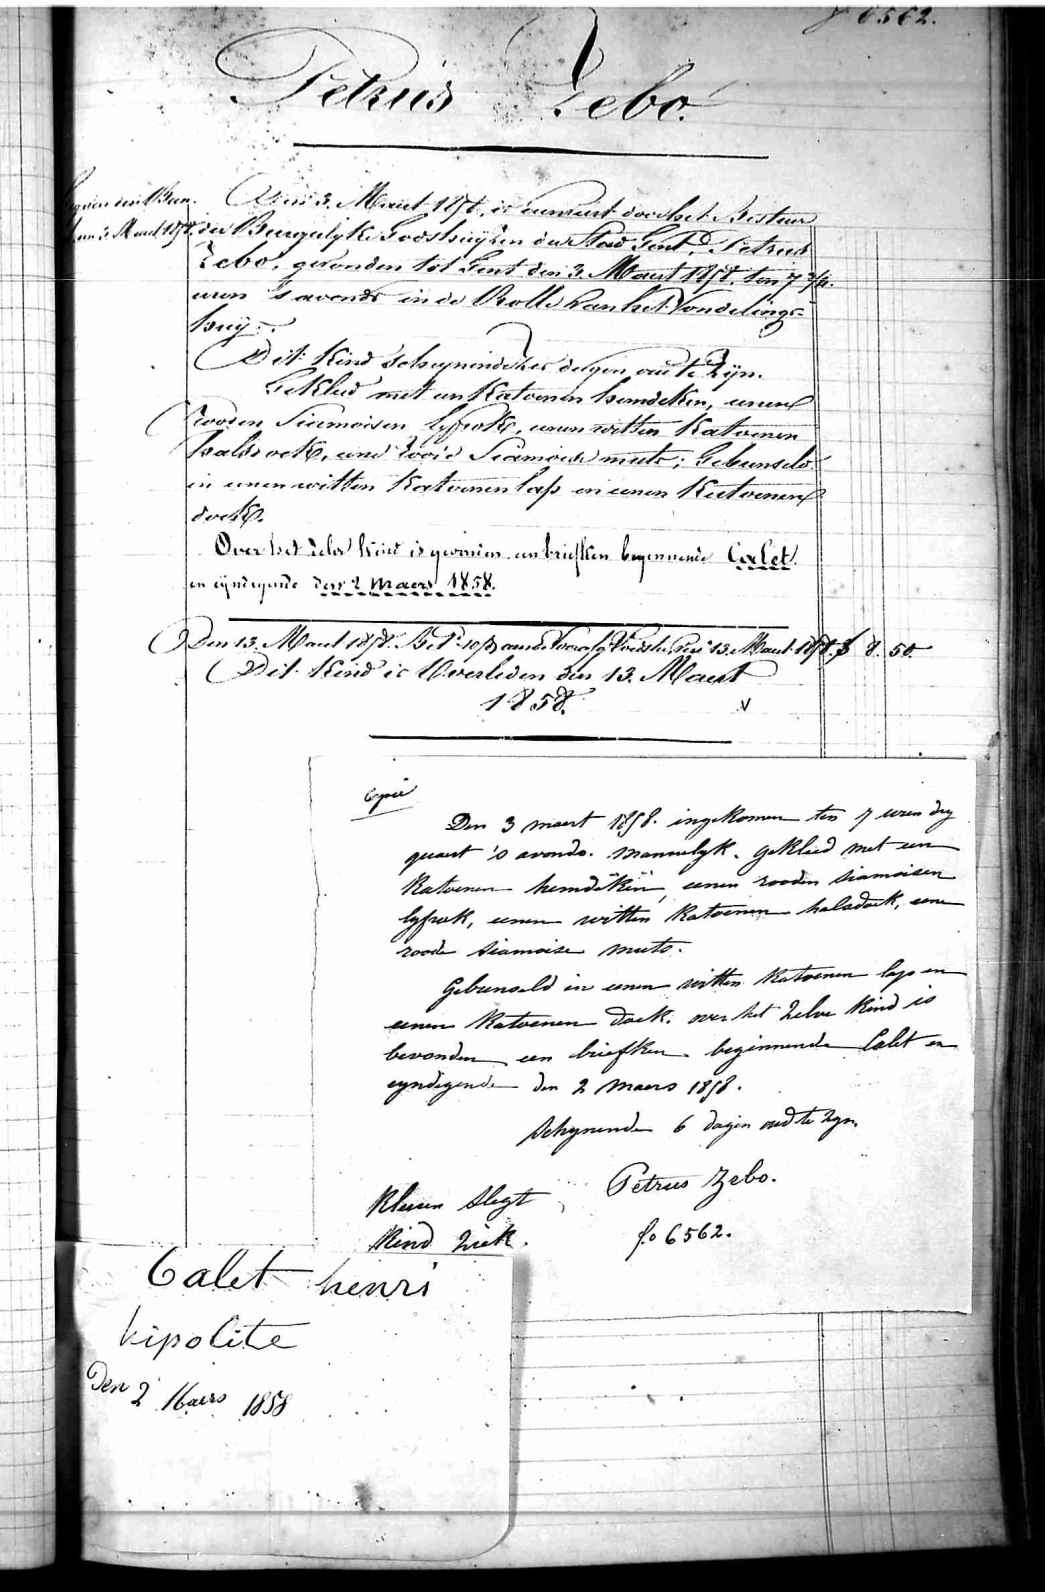 f 6562.
Petrus Zebo.
den 3. Maert 1858.
Den 3. Maert 1858. is aenveert door het Bestuer
der Burgerlyke Godshuyzen der Stad Gent, Petrus
Zebo, gevonden tot Gent den 3. Maert 1858. ten 7 3/4.
uren 's avonds in de Rolle van het Vondelings-
huys.
Dit Kind schynende zes dagen oud te zyn.
Gekleed met een Katoenen hemdeken, eenen
rooden Siamoisen lyfrok, eenen witten Katoenen
halsdoek, eene roode Siamoise muts; Gebunseld
in eenen witten Katoenen lap en eenen Katoenen
doek.
Over het zelve Kind is gevonden een briefken beginnende Calet
en eyndigende den 2 maers 1858.
Den 13. Maert 1858. Bet. 13. Maert 1858. f 8. 50
Dit Kind is Overleden den 13. Maert
1858. V
Copie
Den 3 maert 1858. ingekomen ten 7 uren dry
quaert 's avonds. mannelyk. gekleed met een
Katoenen hemdeken, eenen rooden siamoisen
lyfrok, eenen witten Katoenen halsdoek, eene
roode siamoise muts.
Gebunseld in eenen witten Katoenen lap en
eenen Katoenen doek. over het zelve Kind is
bevonden een briefken beginnende Calet en
eyndigende den 2 maers 1858.
Schynende 6 dagen oud te zyn.
Petrus Zebo.
Kleeren slegt
Kind ziek.
fo 6562.
Calet henri
hipolite
Den 2 Maers 1858